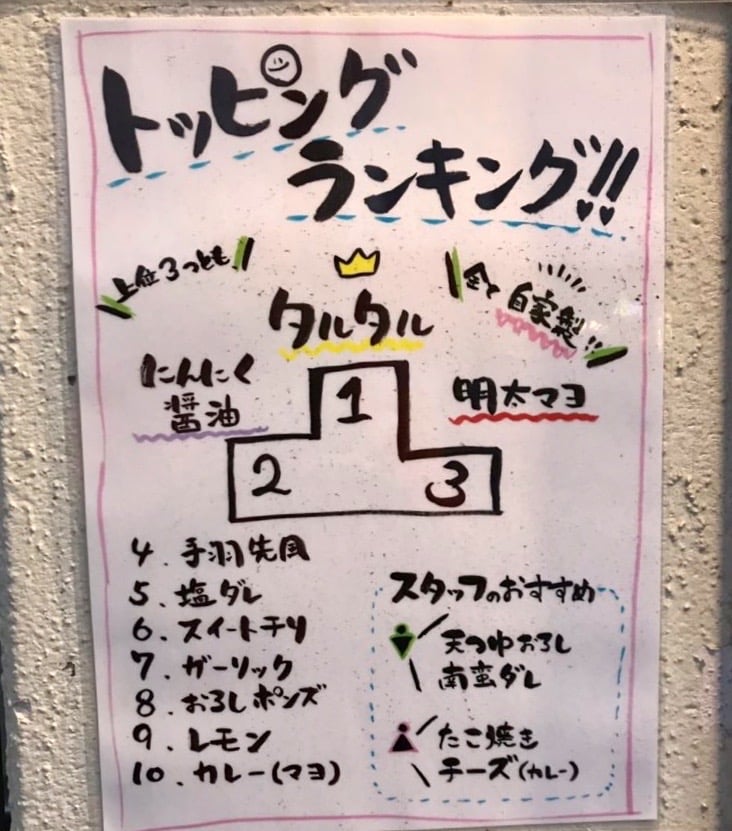 トッピング
ランキング!!
上位3つとも
全て自家製!!
タルタル
にんにく
醤油
明太マヨ
1
2
3
4. 手羽先風
5. 塩ダレ
6. スイートチリ
7. ガーリック
8. おろしポンズ
9. レモン
10. カレー(マヨ)
スタッフのおすすめ
天つゆおろし
南蛮ダレ
たこ焼き
チーズ(カレー)